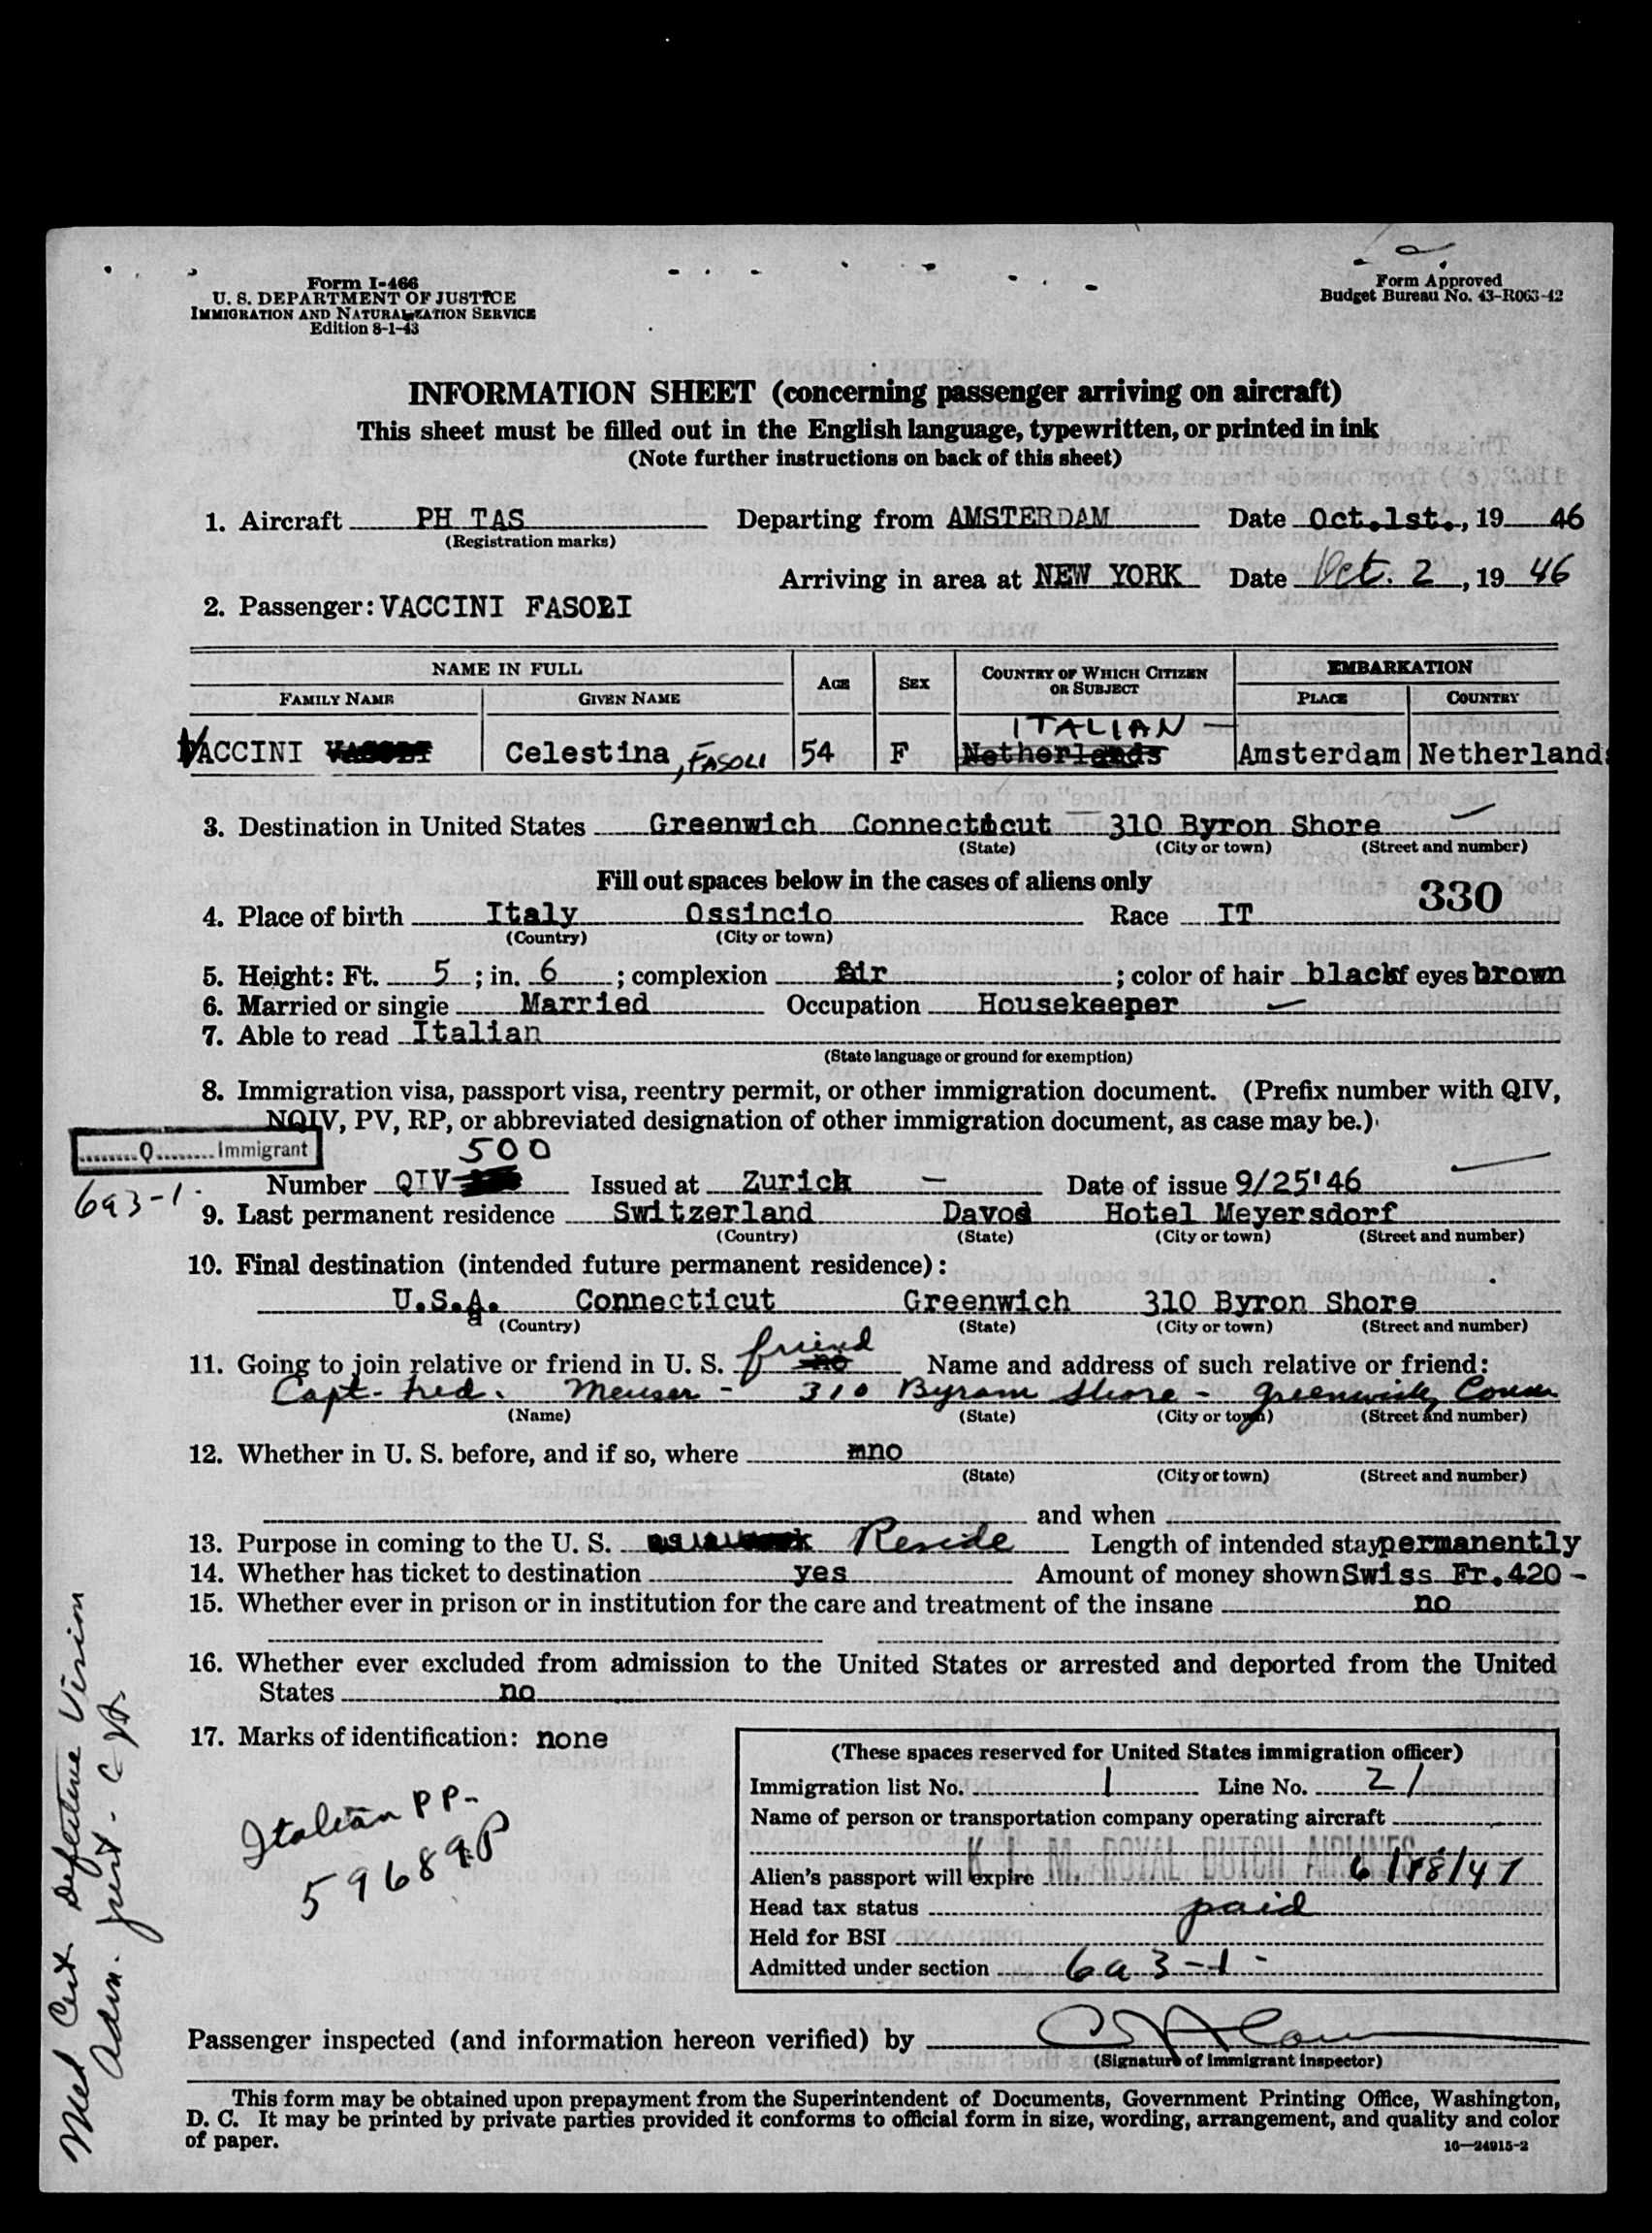 Form I-466
U. S. DEPARTMENT OF JUSTICE
IMMIGRATION AND NATURALIZATION SERVICE
Edition 8-1-43
Form Approved
Budget Bureau No. 43-R063-42
INFORMATION SHEET (concerning passenger arriving on aircraft)
This sheet must be filled out in the English language, typewritten, or printed in ink
(Note further instructions on back of this sheet)
1. Aircraft PH TAS Departing from AMSTERDAM Date Oct.1st., 19 46
(Registration marks)
Arriving in area at NEW YORK Date Oct. 2, 19 46
2. Passenger: VACCINI FASOLI
NAME IN FULL AGE SEX COUNTRY OF WHICH CITIZEN OR SUBJECT EMBARKATION
FAMILY NAME GIVEN NAME PLACE COUNTRY
ITALIAN -
VACCINI Celestina, FASOLI 54 F Netherlands Amsterdam Netherlands
3. Destination in United States Greenwich Connecticut 310 Byron Shore
(State) (City or town) (Street and number)
Fill out spaces below in the cases of aliens only
330
4. Place of birth Italy Ossincio Race IT
(Country) (City or town)
5. Height: Ft. 5; in. 6; complexion fair; color of hair black of eyes brown
6. Married or single Married Occupation Housekeeper
7. Able to read Italian
(State language or ground for exemption)
8. Immigration visa, passport visa, reentry permit, or other immigration document. (Prefix number with QIV,
NQIV, PV, RP, or abbreviated designation of other immigration document, as case may be.)
Q Immigrant
500
6a3-1-
Number QIV Issued at Zurich - Date of issue 9/25'46
9. Last permanent residence Switzerland Davos Hotel Meyersdorf
(Country) (State) (City or town) (Street and number)
10. Final destination (intended future permanent residence):
U.S.A. Connecticut Greenwich 310 Byron Shore
(Country) (State) (City or town) (Street and number)
11. Going to join relative or friend in U. S. friend no Name and address of such relative or friend:
Capt. Fred. Meuser - 310 Byram Shore - Greenwich, Conn
(Name) (State) (City or town) (Street and number)
12. Whether in U. S. before, and if so, where no
(State) (City or town) (Street and number)
and when
13. Purpose in coming to the U. S. Reside Length of intended stay permanently
14. Whether has ticket to destination yes Amount of money shown Swiss Fr.420-
15. Whether ever in prison or in institution for the care and treatment of the insane no
16. Whether ever excluded from admission to the United States or arrested and deported from the United
States no
17. Marks of identification: none
Italian PP-
59689P
(These spaces reserved for United States immigration officer)
Immigration list No. 1 Line No. 21
Name of person or transportation company operating aircraft
K. L. M. ROYAL DUTCH AIRLINES
Alien's passport will expire 6/18/47
Head tax status paid
Held for BSI
Admitted under section 6a3-1-
Med Cert Defective Vision
Adm.
Passenger inspected (and information hereon verified) by
(Signature of immigrant inspector)
This form may be obtained upon prepayment from the Superintendent of Documents, Government Printing Office, Washington,
D. C. It may be printed by private parties provided it conforms to official form in size, wording, arrangement, and quality and color
of paper.
16—24915-2